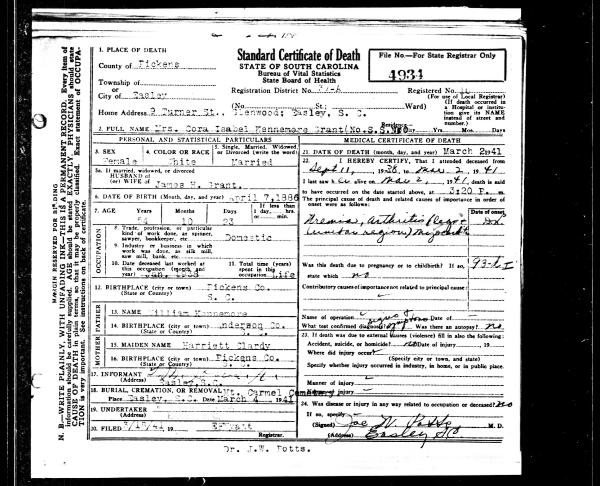 Standard Certificate of Death
STATE OF SOUTH CAROLINA
Bureau of Vital Statistics
State Board of Health
File No.—For State Registrar Only
4934
1. PLACE OF DEATH
County of Pickens
Township of
or
City of Easley
Registration District No.
Registered No.
(For use of Local Registrar)
(No. St.; Ward)
(If death occurred in a Hospital or institution give its NAME instead of street and number.)
Home Address 9 Turner St., Glenwood; Easley, S. C.
2. FULL NAME Mrs. Cora Isabel Kennemore Grant (No.S.S.No
Residence Yrs. Mos. Days
PERSONAL AND STATISTICAL PARTICULARS
3. SEX Female
4. COLOR OR RACE White
5. Single, Married, Widowed, or Divorced (write the word) Married
5a. If married, widowed, or divorced
HUSBAND of
(or) WIFE of James H. Grant.
6. DATE OF BIRTH (Month, day, and year) April 7, 1886
7. AGE 54 10 23
If less than 1 day, hrs. or min.
OCCUPATION
8. Trade, profession, or particular kind of work done, as spinner, sawyer, bookkeeper, etc. Domestic
9. Industry or business in which work was done, as silk mill, saw mill, bank, etc.
10. Date deceased last worked at this occupation (month and year)
11. Total time (years) spent in this occupation Life
12. BIRTHPLACE (city or town) Pickens Co.
(State or County) S. C.
FATHER
13. NAME William Kennemore
14. BIRTHPLACE (city or town) Anderson Co.
(State or Country)
MOTHER
15. MAIDEN NAME Harriett Clardy
16. BIRTHPLACE (city or town) Pickens Co.
(State or Country) S. C.
17. INFORMANT
(Address) Easley, S.C.
18. BURIAL, CREMATION, OR REMOVAL Mt. Carmel Cemetery
Place Easley, S.C. Date March 4 1941
19. UNDERTAKER
(Address)
20. FILED
Registrar.
MEDICAL CERTIFICATE OF DEATH
21. DATE OF DEATH (month, day, and year) March 2, 41
22. I HEREBY CERTIFY, That I attended deceased from
Sept 11, to Mar 2, 1941
I last saw h alive on Mar 2, 1941, death is said
to have occurred on the date stated above, at 3:20 P. m.
The principal cause of death and related causes of importance in order of onset were as follows:
Date of onset
Uremia, Arthritis
(lumbar region)
Was this death due to pregnancy or to childbirth? If so,
state which no
Contributory causes of importance not related to principal cause:
Name of operation
What test confirmed diagnosis? Was there an autopsy? no
23. If death was due to external causes (violence) fill in also the following:
Accident, suicide, or homicide? Date of injury , 19
Where did injury occur?
(Specify city or town, and state)
Specify whether injury occurred in industry, in home, or in public place.
Manner of injury
Nature of injury
24. Was disease or injury in any way related to occupation of deceased? no
If so, specify
(Signed) Joe W. Potts M. D.
(Address) Easley SC
Dr. J.W. Potts.
MARGIN RESERVED FOR BINDING
N. B.—WRITE PLAINLY, WITH UNFADING INK—THIS IS A PERMANENT RECORD. Every item of
information should be carefully supplied. AGE should be stated EXACTLY. PHYSICIANS should state
CAUSE OF DEATH in plain terms, so that it may be properly classified. Exact statement of OCCUPA-
TION is very important. See instructions on back of certificate.